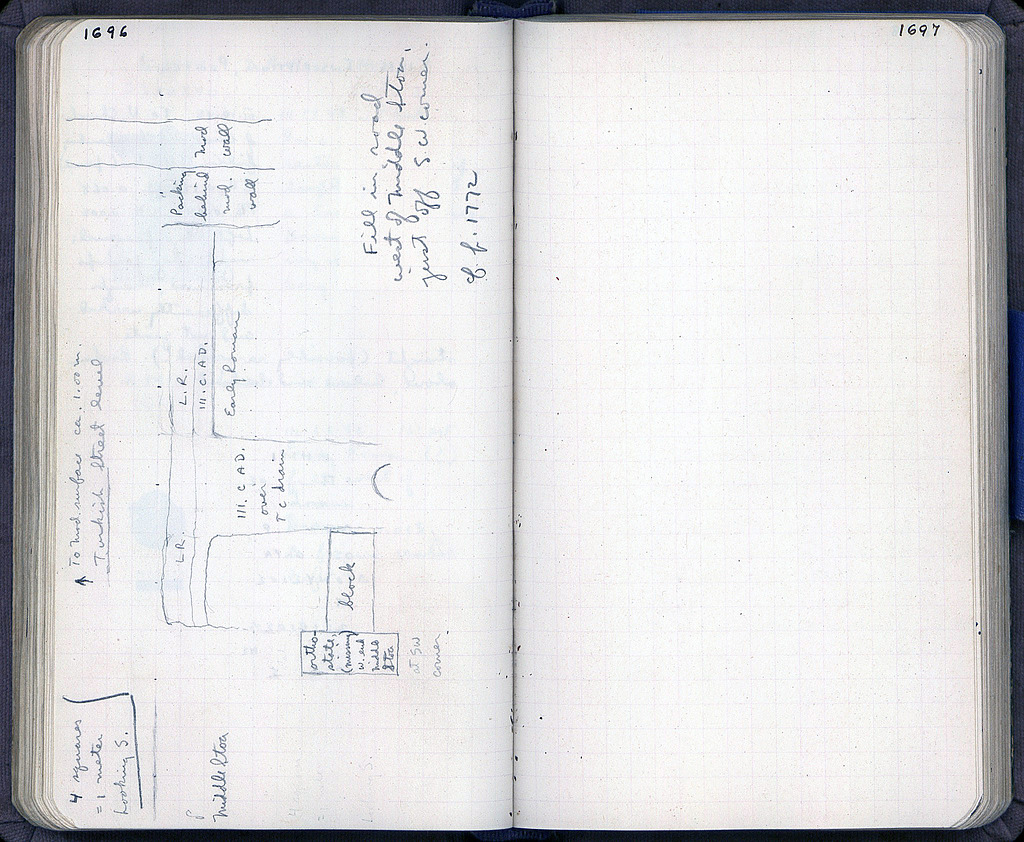 1696
1697
4 squares
= 1 meter
Looking S.
↑ To mod. surface ca. 1.00 m.
Turkish street level
Middle Stoa
L.R.
L.R.
III. C. A.D.
Early Roman
III. C A D.
over
TC drain
Packing
behind
mod.
wall
mod
wall
block
ortho-
state,
(missing)
w. end
middle
stoa
at SW
corner.
Fill in road
west of Middle Stoa,
just off S.W. corner.
cf. p. 1772